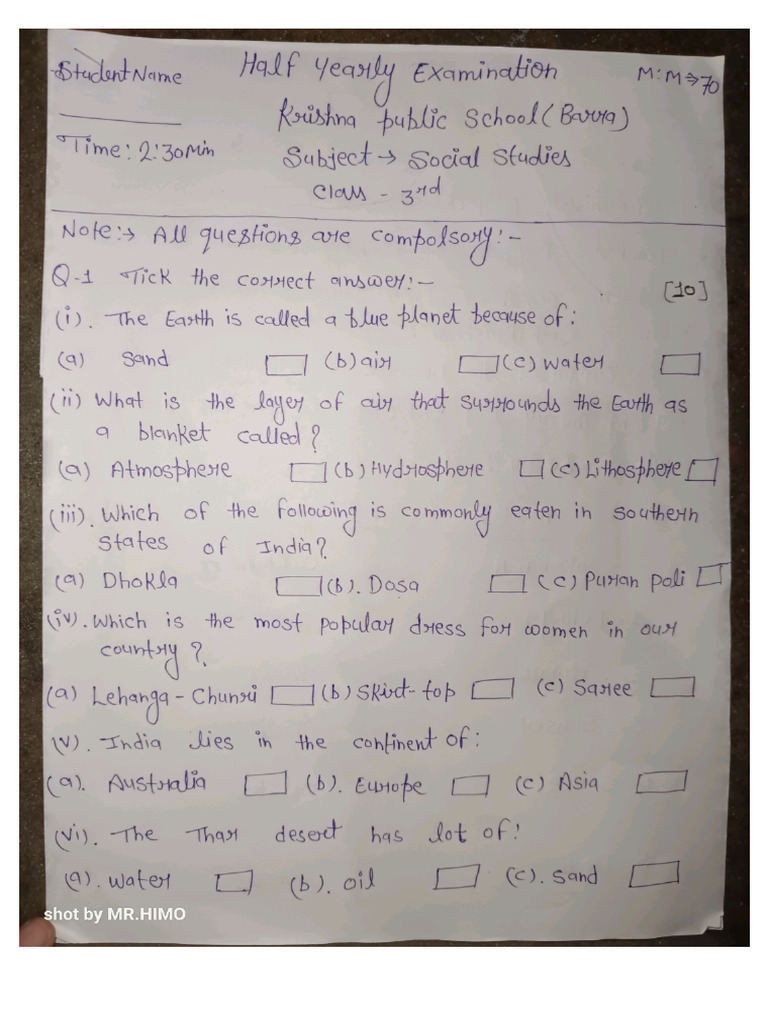 Student Name Half Yearly Examination M:M→70
Krishna public School (Barra)
Time: 2:30 Min Subject → Social Studies
Class - 3rd
Note:→ All questions are compolsory:-
Q-1 Tick the correct answer:- [10]
(i). The Earth is called a blue planet because of:
(a) Sand (b) air (c) water
(ii) What is the layer of air that surrounds the Earth as
a blanket called?
(a) Atmosphere (b) Hydrosphere (c) Lithosphere
(iii). Which of the following is commonly eaten in southern
states of India?
(a) Dhokla (b). Dosa (c) Puran poli
(iv). Which is the most popular dress for women in our
country?
(a) Lehanga - Chunri (b) Skirt-top (c) Saree
(v). India lies in the continent of:
(a). Australia (b). Europe (c) Asia
(vi). The Thar desert has lot of:
(a). water (b). oil (c). Sand
shot by MR.HIMO